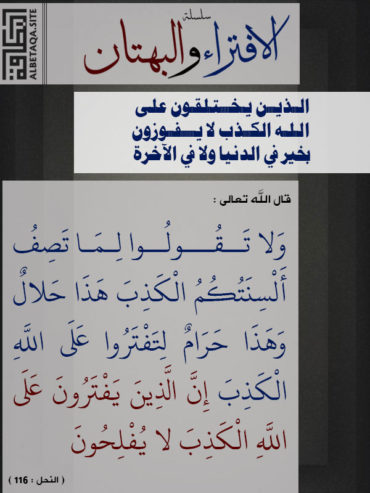 سلسلة
الافتراء والبهتان
ALBETAQA.SITE
الذين يختلقون على
الله الكذب لا يفوزون
بخير في الدنيا ولا في الآخرة
قال الله تعالى :
وَلَا تَقُولُوا لِمَا تَصِفُ
أَلْسِنَتُكُمُ الْكَذِبَ هَذَا حَلَالٌ
وَهَذَا حَرَامٌ لِتَفْتَرُوا عَلَى اللَّهِ
الْكَذِبَ إِنَّ الَّذِينَ يَفْتَرُونَ عَلَى
اللَّهِ الْكَذِبَ لَا يُفْلِحُونَ
( النحل : 116 )